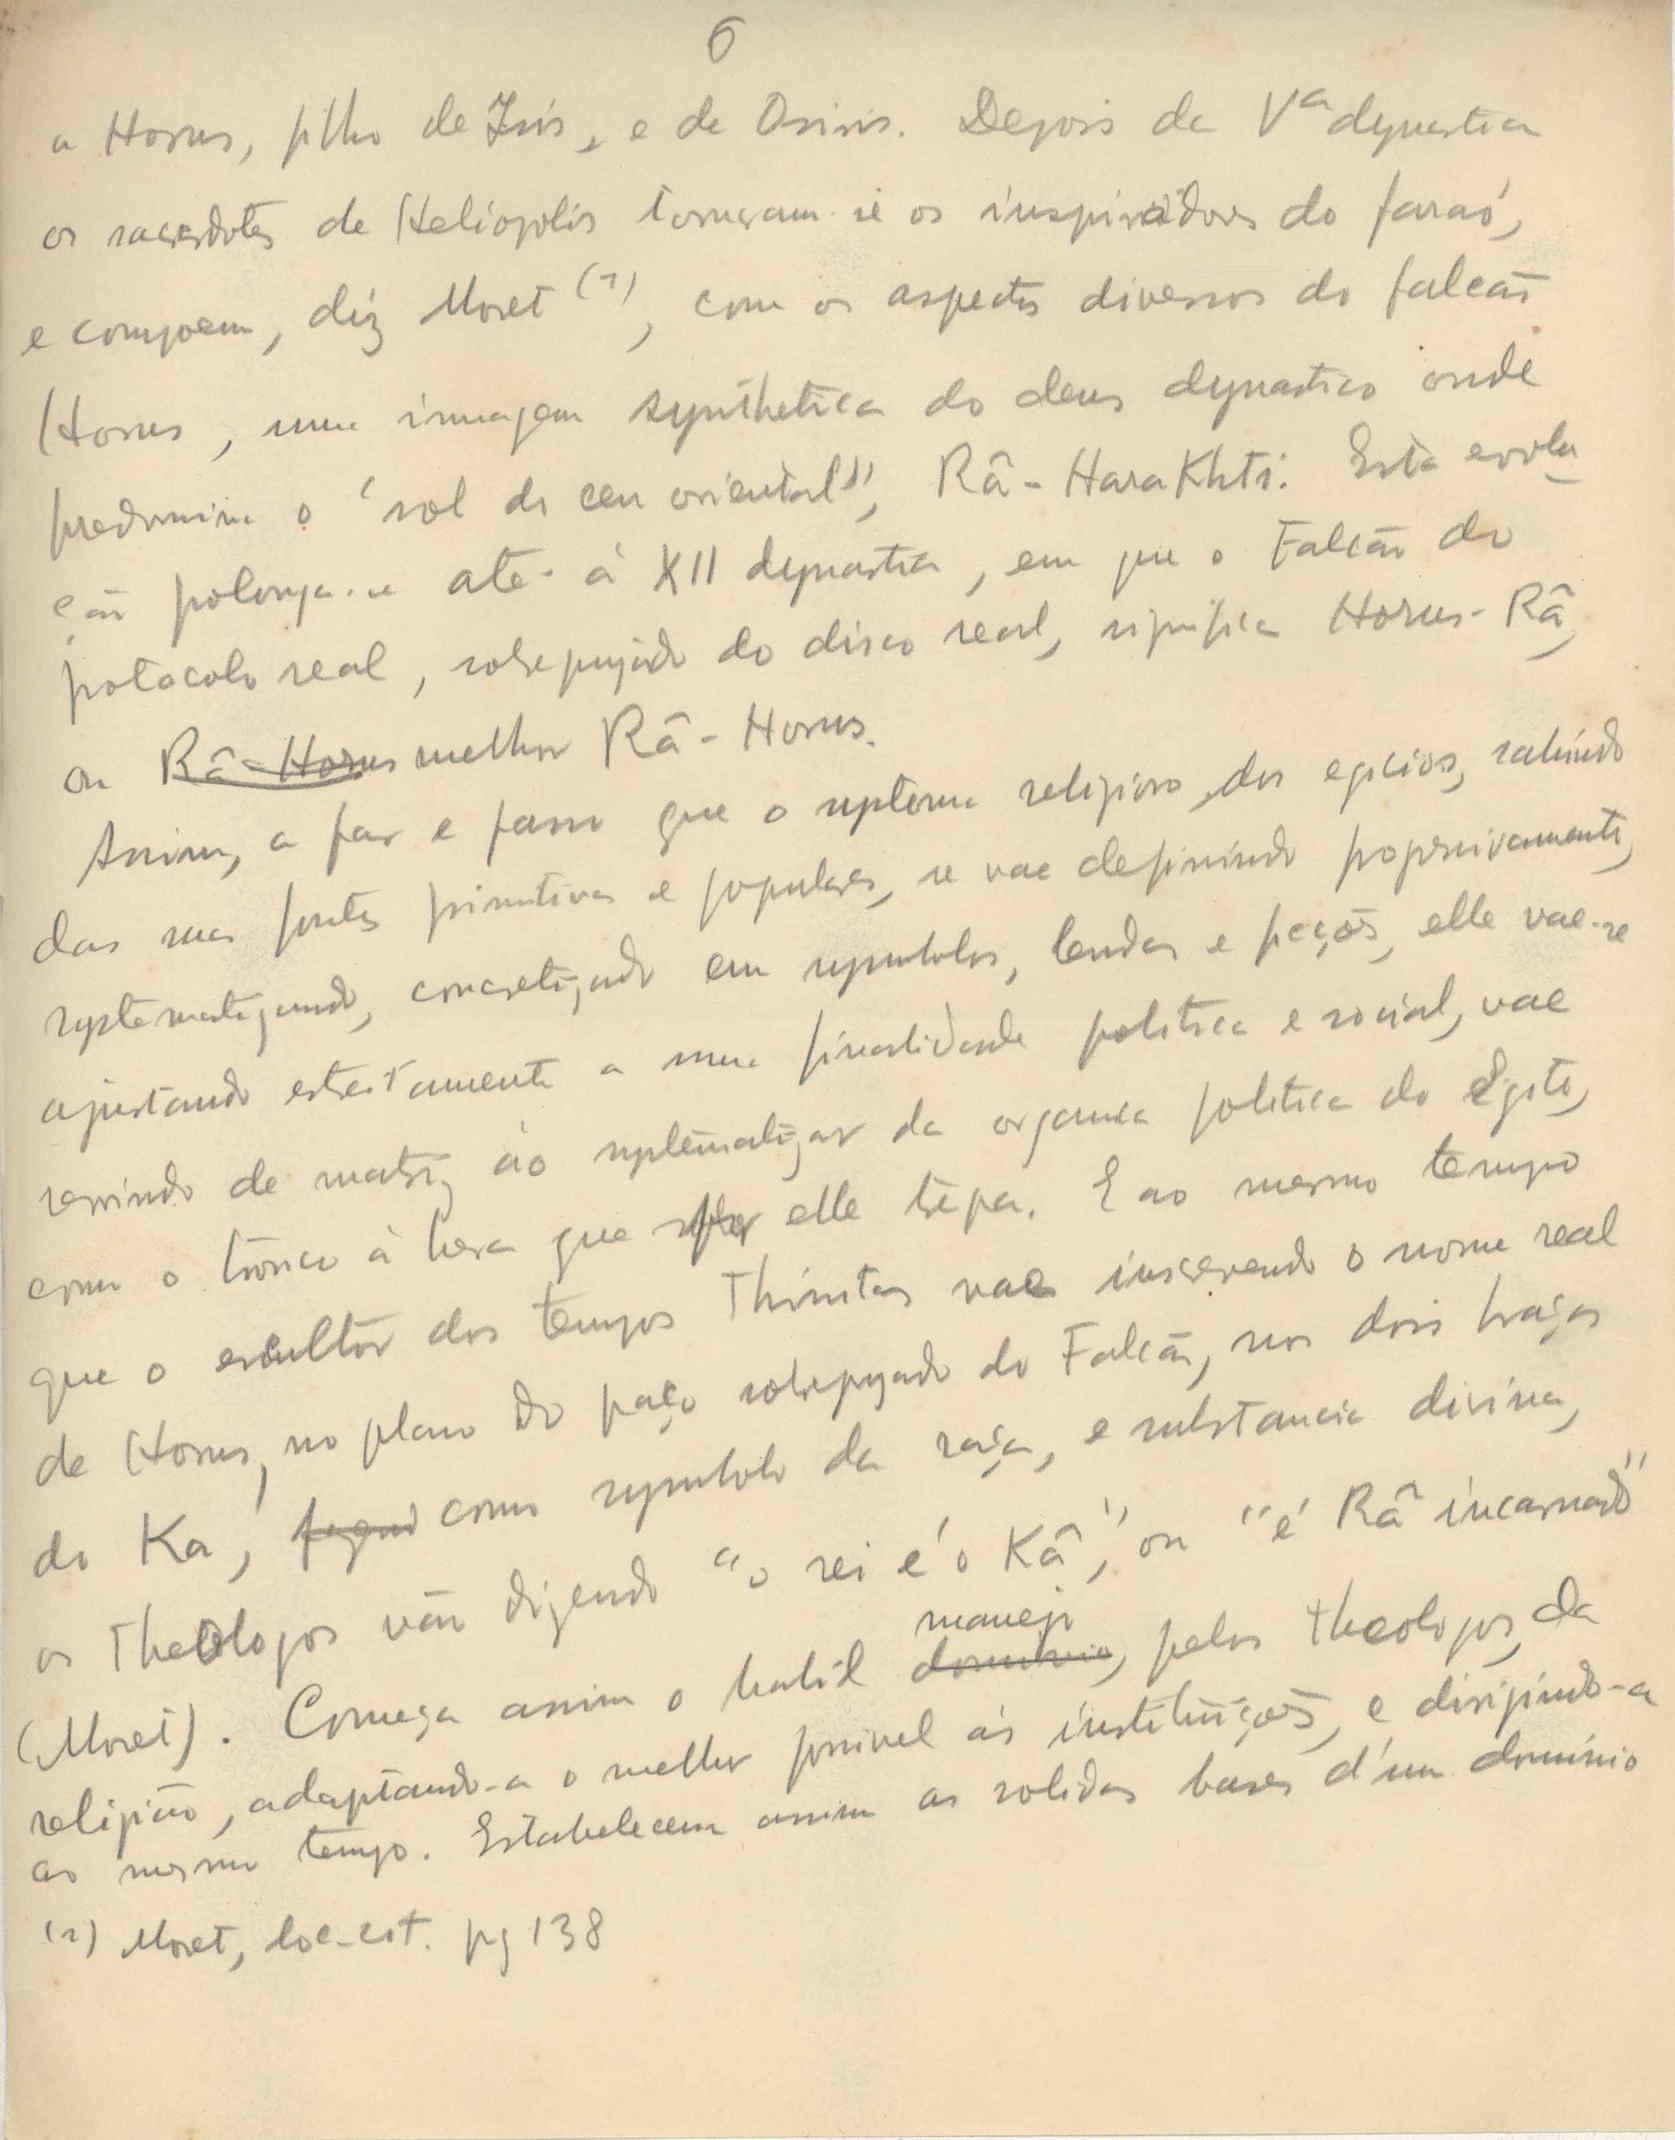 6
a Horus, filho de Isis, e de Osiris. Depois da Vª dynastia
os sacerdotes de Heliopolis tornaram-se os inspiradores do faraó,
e compoem, diz Moret (1), com os aspectos diversos do falcão
Horus, uma imagem synthetica do deus dynastico onde
predomina o "sol do ceu oriental", Râ-HaraKhti. Esta evolu
ção prolonga-se até á XII dynastia, em que o Falcão do
protocolo real, sobrepujado do disco real, significa Horus-Râ,
ou Râ-Horus melhor Râ-Horus.
Assim, a par e passo que o systema religioso, dos egicios, sahindo
das suas fontes primitivas e populares, se vae definindo progressivamente,
systematizando, concretizando em symbolos, lendas e preções, elle vae-se
ajustando estreitamente a uma finalidade politica e social, vae
servindo de matriz ao systematizar da organica politica do Egito,
como o tronco á hera que elle trepa. E ao mesmo tempo
que o escultor dos tempos Thinitas vae inscrevendo o nome real
de Horus, no plano do paço sobrepujado do Falcão, nos dois braços
do Ka, como symbolo da raça, e substancia divina,
os Theologos vão dizendo "o rei é o Kâ", ou "é Râ incarnado"
(Moret). Começa assim o habil dominio manejo, pelos theologos, da
religião, adaptando-a o melhor possivel ás instituições, e dirigindo-a
ao mesmo tempo. Estabelecem assim as solidas bases d'um dominio
(1) Moret, loc-cit. pg 138